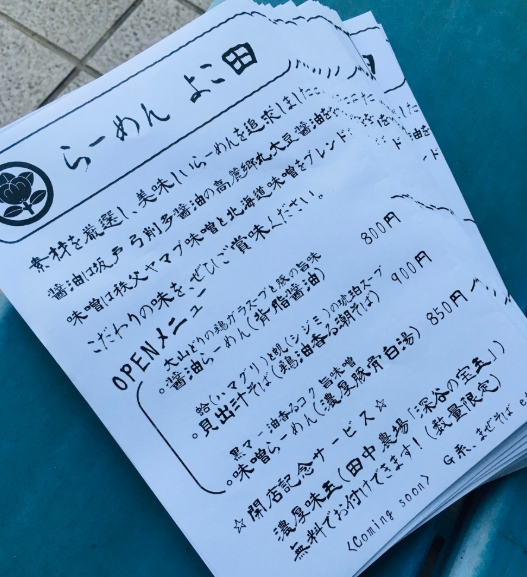 らーめん よこ田
素材を厳選し、美味しいらーめんを追求しました
醤油は坂戸 弓削多醤油の高麗郷丸大豆醤油を
味噌は秩父ヤマブ味噌と北海道味噌をブレンド
こだわりの味をぜひご賞味ください。
OPENメニュー
大山どりの鶏ガラスープと豚の旨味
。醤油らーめん(非脂醤油) 800円
蛤(ハマグリ)と蜆(シジミ)の琥珀スープ
。貝出汁そば(鶏油香る潮そば) 900円
黒マー油香るコク旨味噌
。味噌らーめん(濃厚豚骨白湯) 850円
☆開店記念サービス☆
濃厚味玉(田中農場「深谷の宝玉」)
無料でお付けできます!(数量限定)
<Coming soon> G系、まぜそば